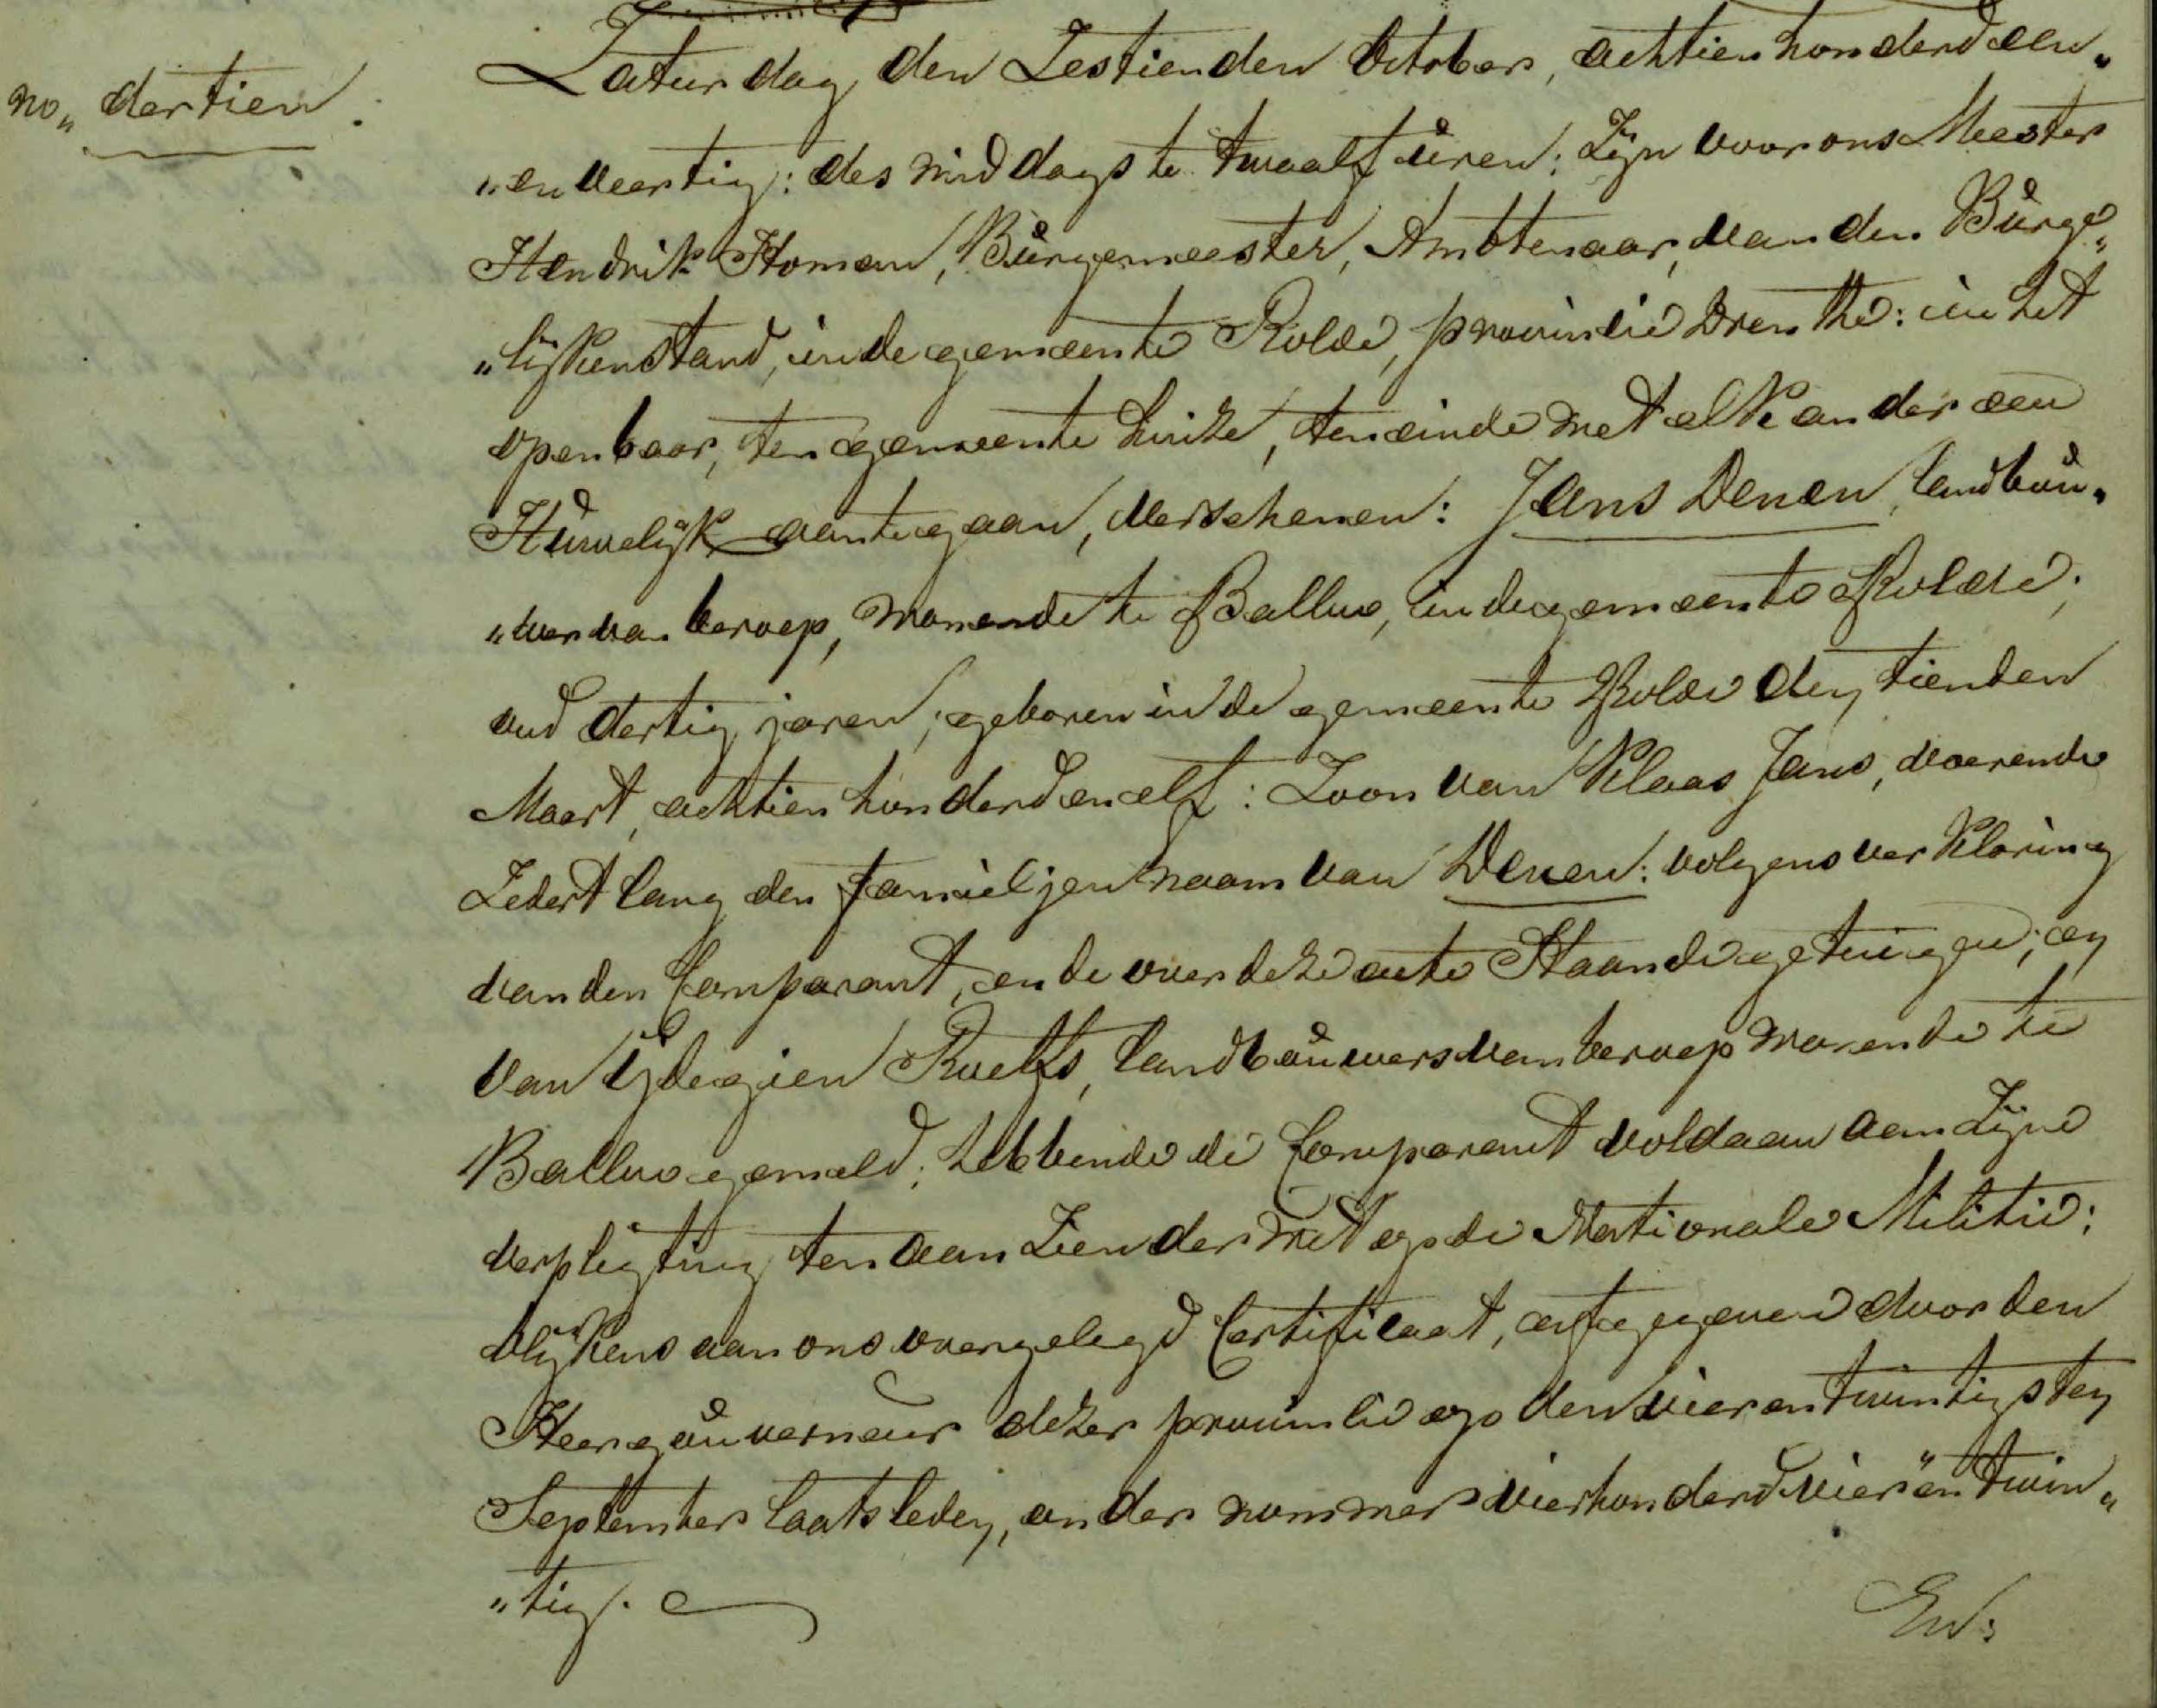 no„ dertien.
Zaturdag den Zestienden October, achttienhonderd een„
„en veertig: des middags te twaalf uren: Zijn voor ons Meester
Hendrik Homan, Burgemeester, Ambtenaar, van den Burge„
„lijkenstand, in de gemeente Rolde, provincie Drenthe: in het
openbaar, ten gemeente huize, ten einde met elkander een
Huwelijk aantegaan, verschenen: Jans Denen, landbou„
„wer van beroep, wonende te Balloo, in de gemeente Rolde;
oud dertig jaren; geboren in de gemeente Rolde den tienden
Maart, achttien honderd en elf: Zoon van Klaas Jans, voerende
Zedert lang den familjen naam van Denen: volgens verklaring
van den Comparant, en de over deze acte Staande getuigen; en
van IJdegien Roelfs, landbouwers van beroep wonende te
Balloo gemeld; hebbende de Comparant voldaan aan Zijne
verpligting ten aan Zien der Wet op de Nationale Militie;
blijkens aan ons overgelegd Certificaat, afgegeven door den
Heer gouverneur dezer provincie op den vier en twintigsten
September laatsleden, onder nommer vierhonderd vier en twin„
„tig.
En: